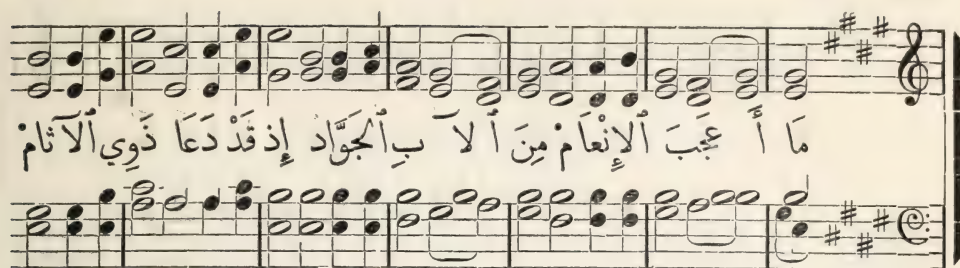 مَا أَ عْجَبَ ٱلْإِنْعَامْ مِنَ ٱ لْآ بِ ٱلْجَوَّادْ إِذ قَدْ دَعَا ذَوِي ٱلْآثَامْ